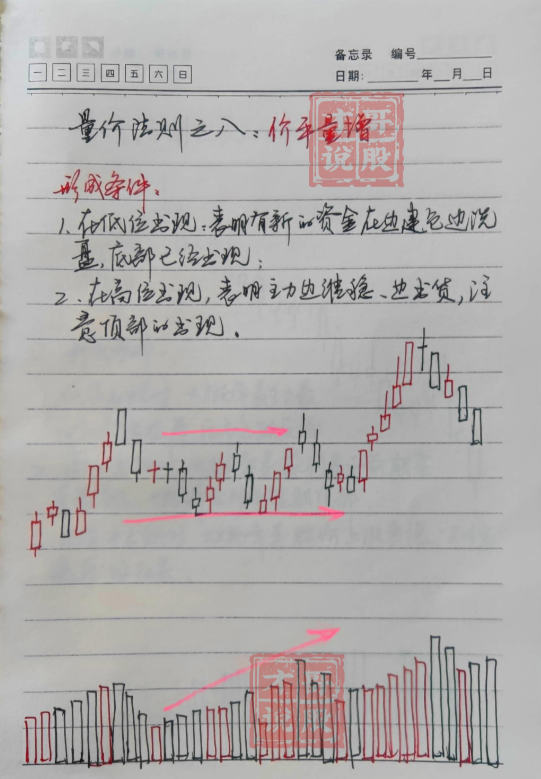 备忘录 编号
一 二 三 四 五 六 日
日期: 年 月 日
量价法则之八：价平量增
形成条件：
1、在低位出现：表明有新的资金在边建仓边洗
盘，底部已经出现；
2、在高位出现，表明主力边维稳、边出货，注
意顶部的出现。
哥说股
哥说股